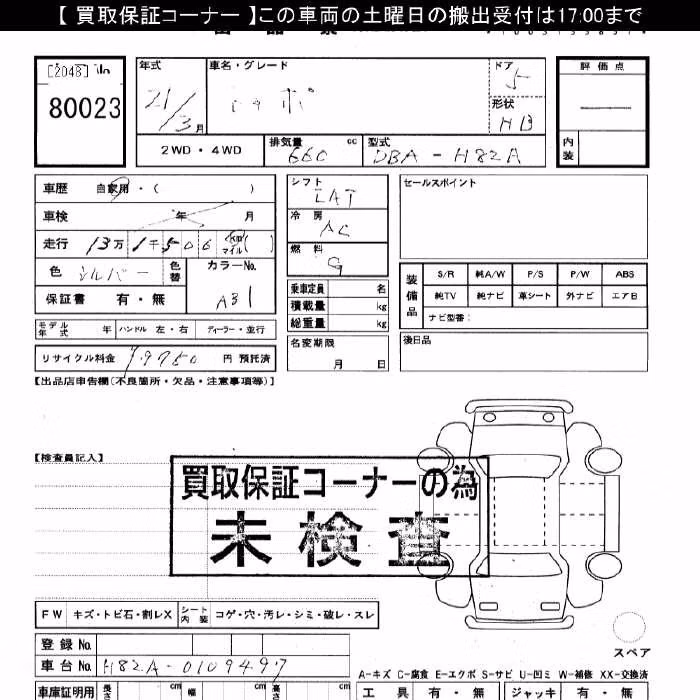 【 買取保証コーナー 】この車両の土曜日の搬出受付は17:00まで
[2048]
80023
年式
21/3月
車名・グレード
トッポ
ドア
5
形状
HB
評価点
内装
2WD・4WD
排気量 660 cc
型式 DBA-H82A
車歴 自家用・( )
車検 年 月
走行 13万1千506 km マイル( )
色 シルバー 色替
カラーNo. A31
保証書 有・無
モデル年式 年 ハンドル 左・右 ディーラー・並行
リサイクル料金 円 預託済
シフト
冷房
AC
燃料
G
乗車定員 名
積載量 kg
総重量 kg
名変期限
月 日
セールスポイント
装備品
S/R 純A/W P/S P/W ABS
純TV 純ナビ 革シート 外ナビ エアB
ナビ型番:
後日品
【出品店申告欄(不良箇所・欠品・注意事項等)】
【検査員記入】
買取保証コーナーの為
未検査
FW キズ・トビ石・割レX シート内装 コゲ・穴・汚レ・シミ・破レ・スレ
スペア
登録 No.
車台 No. H82A-0109497
A-キズ C-腐食 E-エクボ S-サビ U-凹ミ W-補修 XX-交換済
車庫証明用 長さ cm 幅 cm 高さ cm
工具 有・無 ジャッキ 有・無